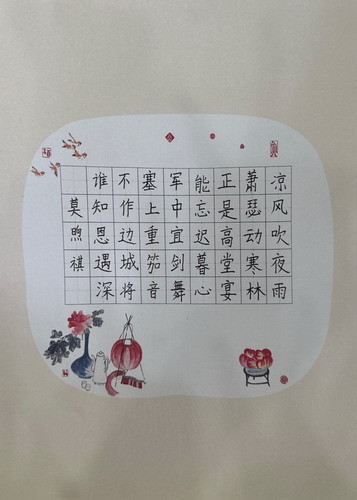 凉风吹夜雨
萧瑟动寒林
正是高堂宴
能忘迟暮心
军中宜剑舞
塞上重笳音
不作边城将
谁知恩遇深
莫煦祺